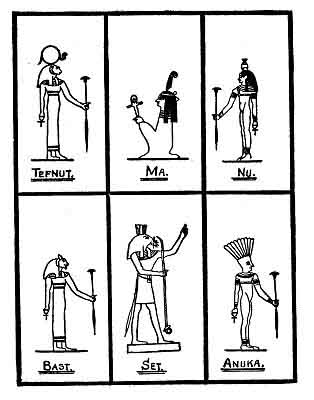 TEFNUT.
MA.
NU.
BAST.
SET.
ANUKA.